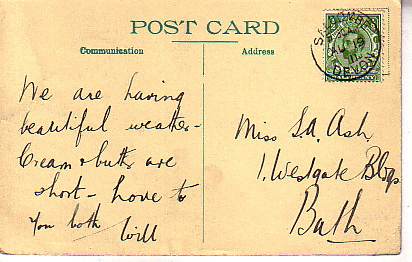 POST CARD
Communication
Address
SALCOMBE
19
DEVON
We are having
beautiful weather -
Cream & butter are
short - love to
you both
Will
Miss S.A. Ash
1. Westgate Bldgs
Bath